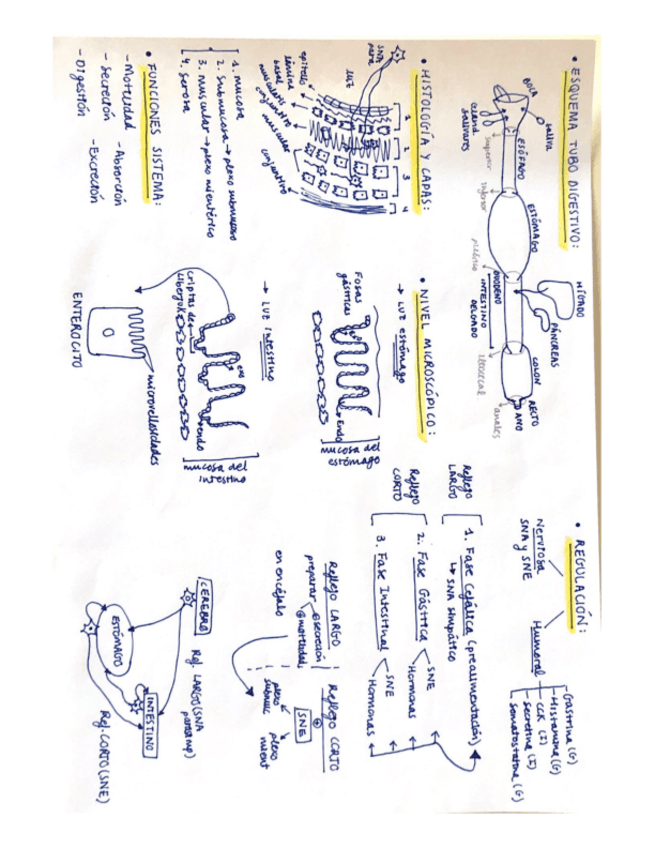 • ESQUEMA TUBO DIGESTIVO:
BOCA
saliva
ESÓFAGO
ESTÓMAGO
HÍGADO
PÁNCREAS
COLON
RECTO
ANO
salivares
superior
inferior
pilórico
DUODENO
INTESTINO
DELGADO
ileocecal
anales
• HISTOLOGÍA Y CAPAS:
SNA
LUZ
epitelio
lámina
basal
muscularis
conjuntivo
muscular
conjuntivo
1
2
3
4
1. mucosa
2. submucosa → plexo submucoso
3. muscular → plexo mientérico
4. serosa
• FUNCIONES SISTEMA:
- Motilidad
- Absorción
- Secreción
- Excreción
- Digestión
• NIVEL MICROSCÓPICO:
→ LUZ estómago
Fosas
gástricas
Endo
mucosa del
estómago
→ LUZ intestino
criptas de
endo
mucosa del
intestino
microvellosidades
ENTEROCITO
• REGULACIÓN:
Nerviosa
SNA y SNE
Humoral
- Gastrina (G)
- Histamina (G)
- CCK (I)
- Secretina (I)
- Somatostatina (G)
Reflejo
LARGO
1. Fase Cefálica (prealimentación)
↳ SNA simpático
Reflejo
CORTO
2. Fase Gástrica
SNE
Hormonas
3. Fase Intestinal
SNE
Hormonas
Reflejo LARGO
preparar
secreción
motilidad
en encéfalo
Reflejo CORTO
SNE
plexo
submuc
plexo
mient
CEREBRO
Ref. LARGO (SNA
ESTÓMAGO
INTESTINO
Ref. CORTO (SNE)